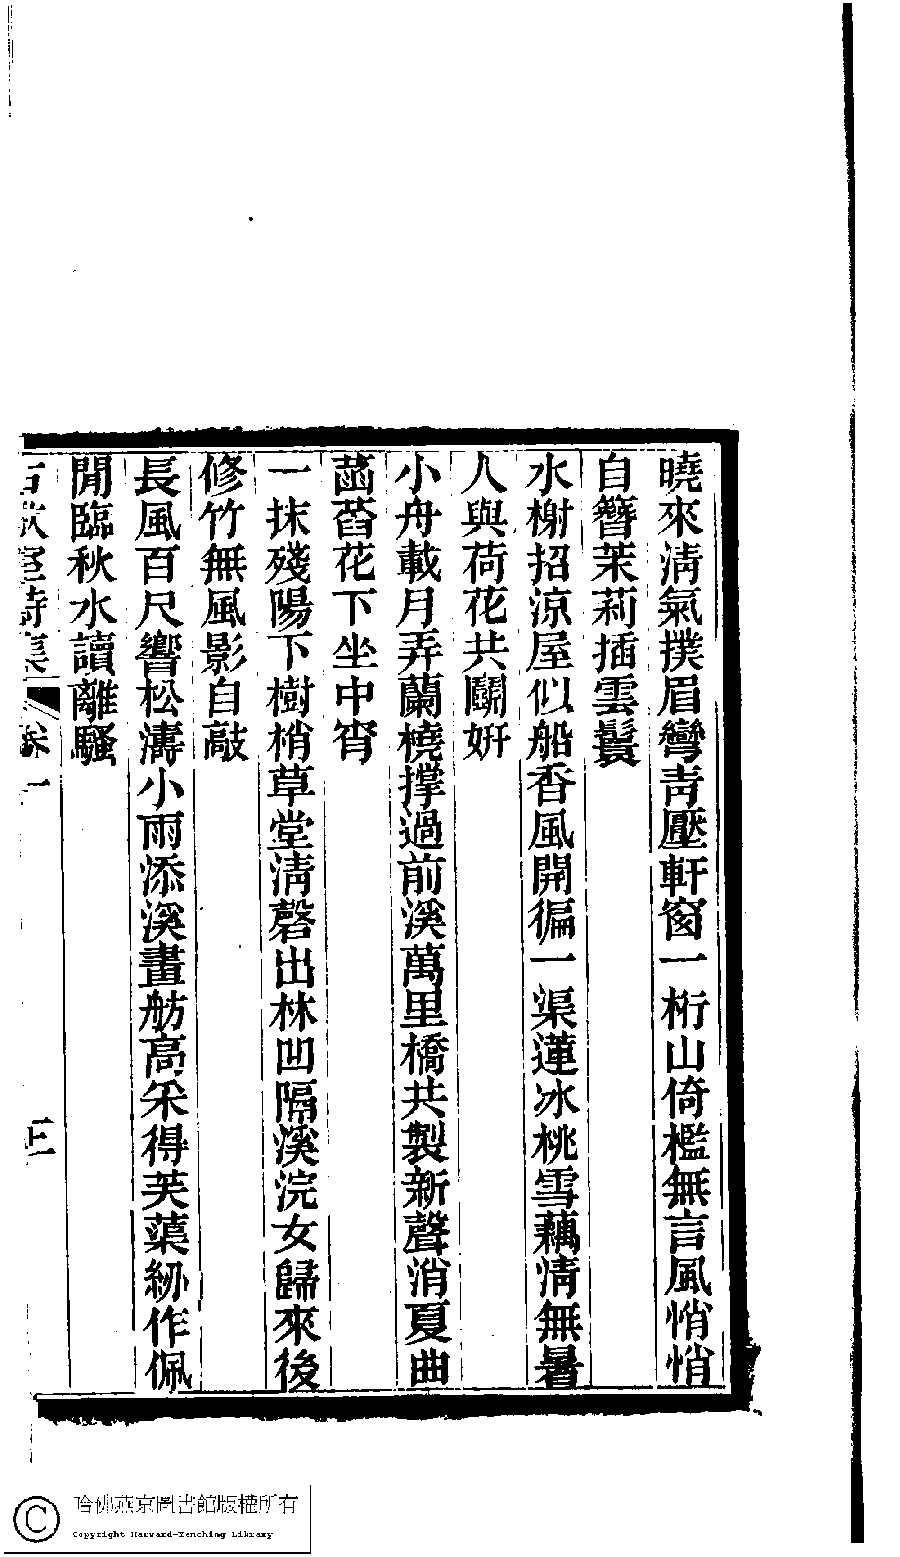 曉來淸氣撲眉彎靑壓軒窗一桁山倚檻無言風悄悄
自簪茉莉插雲鬟
水榭招涼屋似船香風開徧一渠蓮冰桃雪藕情無暑
人與荷花共鬭姸
小舟載月弄蘭橈撑過前溪萬里橋共製新聲消夏曲
菡萏花下坐中宵
一抹殘陽下樹梢草堂淸磬出林凹隔溪浣女歸來後
修竹無風影自敲
長風百尺響松濤小雨添溪畫舫高采得芙蕖紉作佩
閒臨秋水讀離騷
詩集 卷一
哈佛燕京圖書館版權所有
Copyright Harvard-Yenching Library